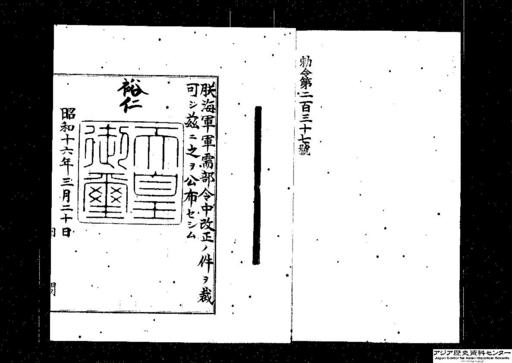 勅令第二百三十七號
朕海軍軍需部令中改正ノ件ヲ裁
可シ茲ニ之ヲ公布セシム
裕仁
天皇
御璽
昭和十六年三月二十日
アジア歴史資料センター
Japan Center for Asian Historical Records